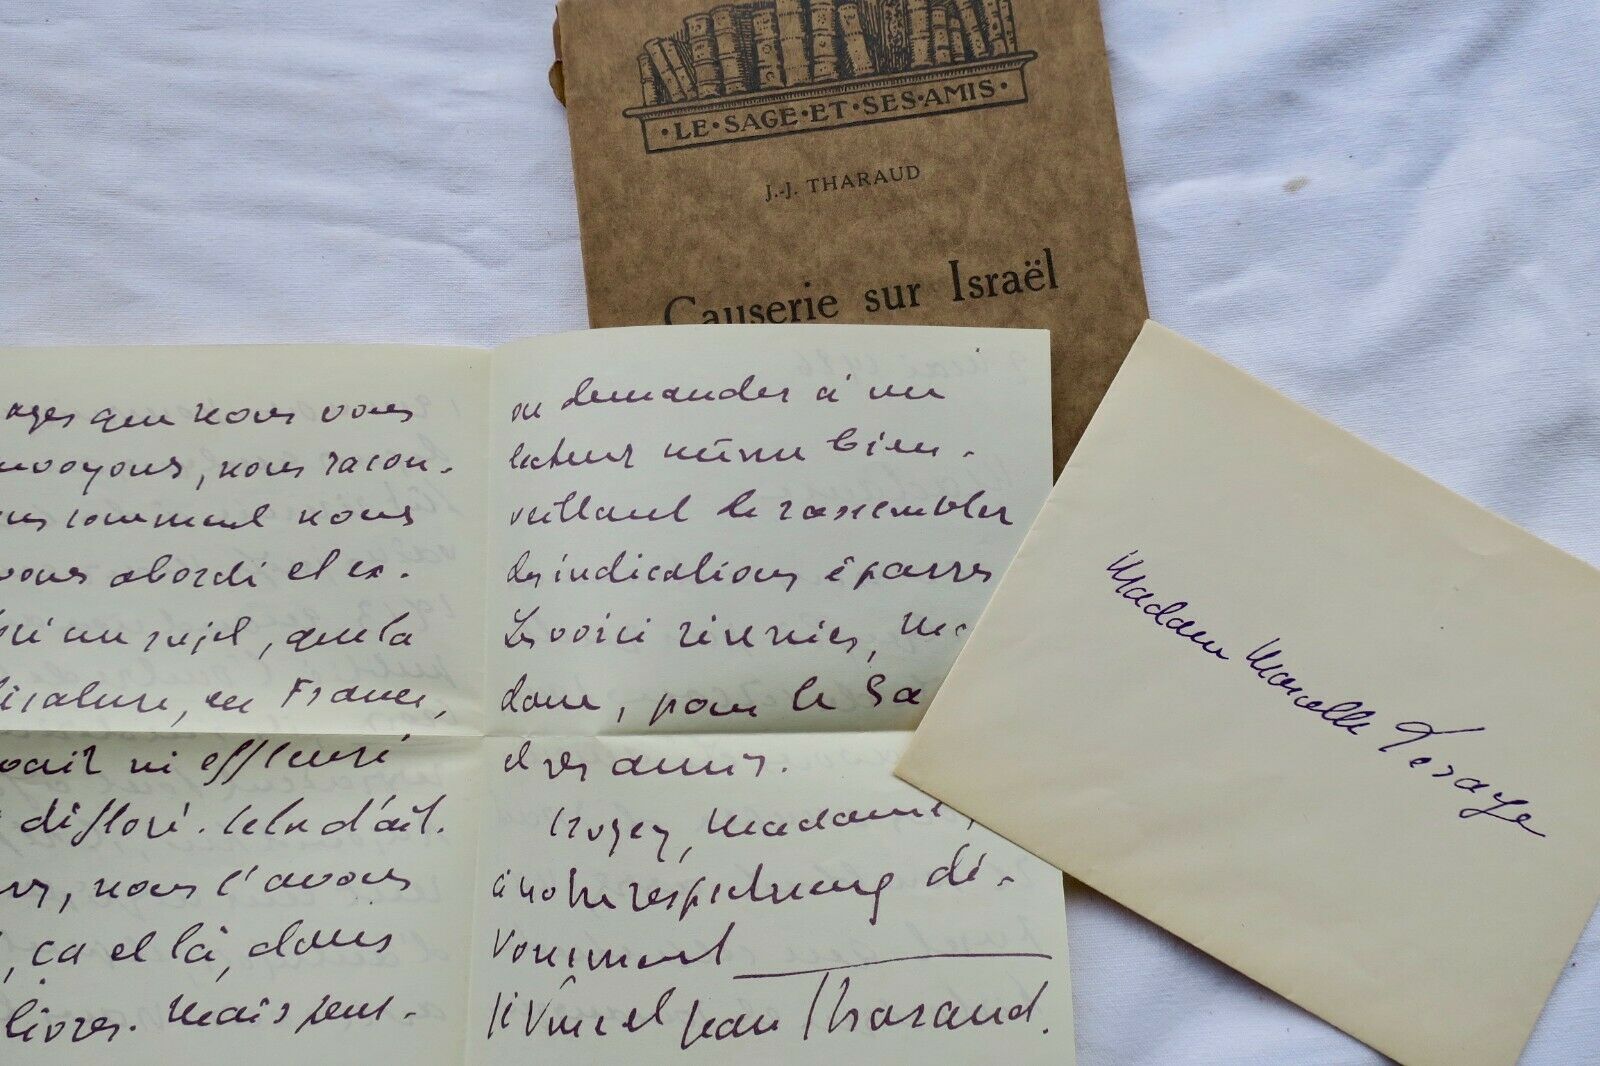 ·LE·SAGE·ET·SES·AMIS·
J.-J. THARAUD
Causerie sur Israël
ages que nous vous
voyons, nous racon-
comment nous
vous abordé et ex-
un sujet, que la
en France,
ni effleuré
défloré. Cela d'ail-
nous l'avons
, ça et là, dans
livres. Mais peut-
on demander à un
lecteur même bien-
veillant de rassembler
des indications éparses
Les voici réunies, Ma-
dame, pour le Sa
et ses amis.
Croyez, Madame,
à notre respectueux dé-
vouement
Jérôme et Jean Tharaud.
Madame Marcelle Lesage